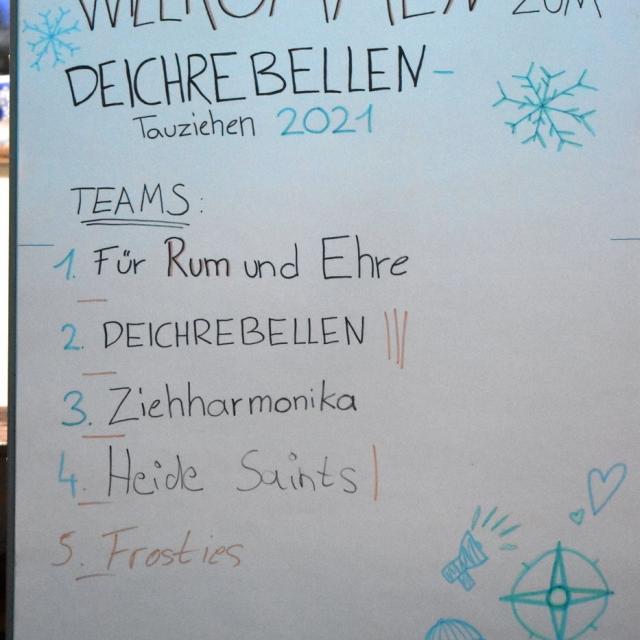 WILLKOMMEN ZUM
DEICHREBELLEN-
Tauziehen 2021
TEAMS:
1. Für Rum und Ehre
2. DEICHREBELLEN |||
3. Ziehharmonika
4. Heide Saints |
5. Frosties